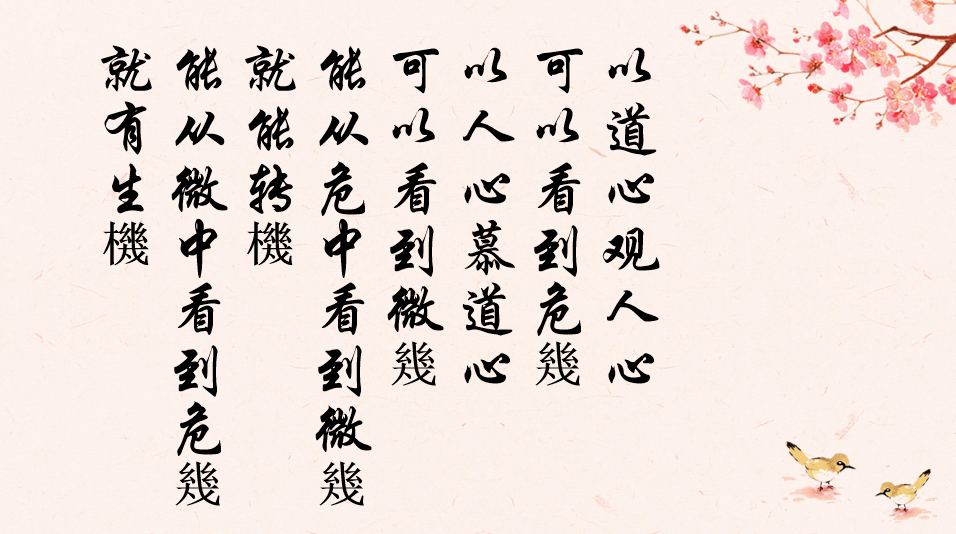 以道心观人心
可以看到危幾
以人心慕道心
可以看到微幾
能从危中看到微幾
就能转機
能从微中看到危幾
就有生機